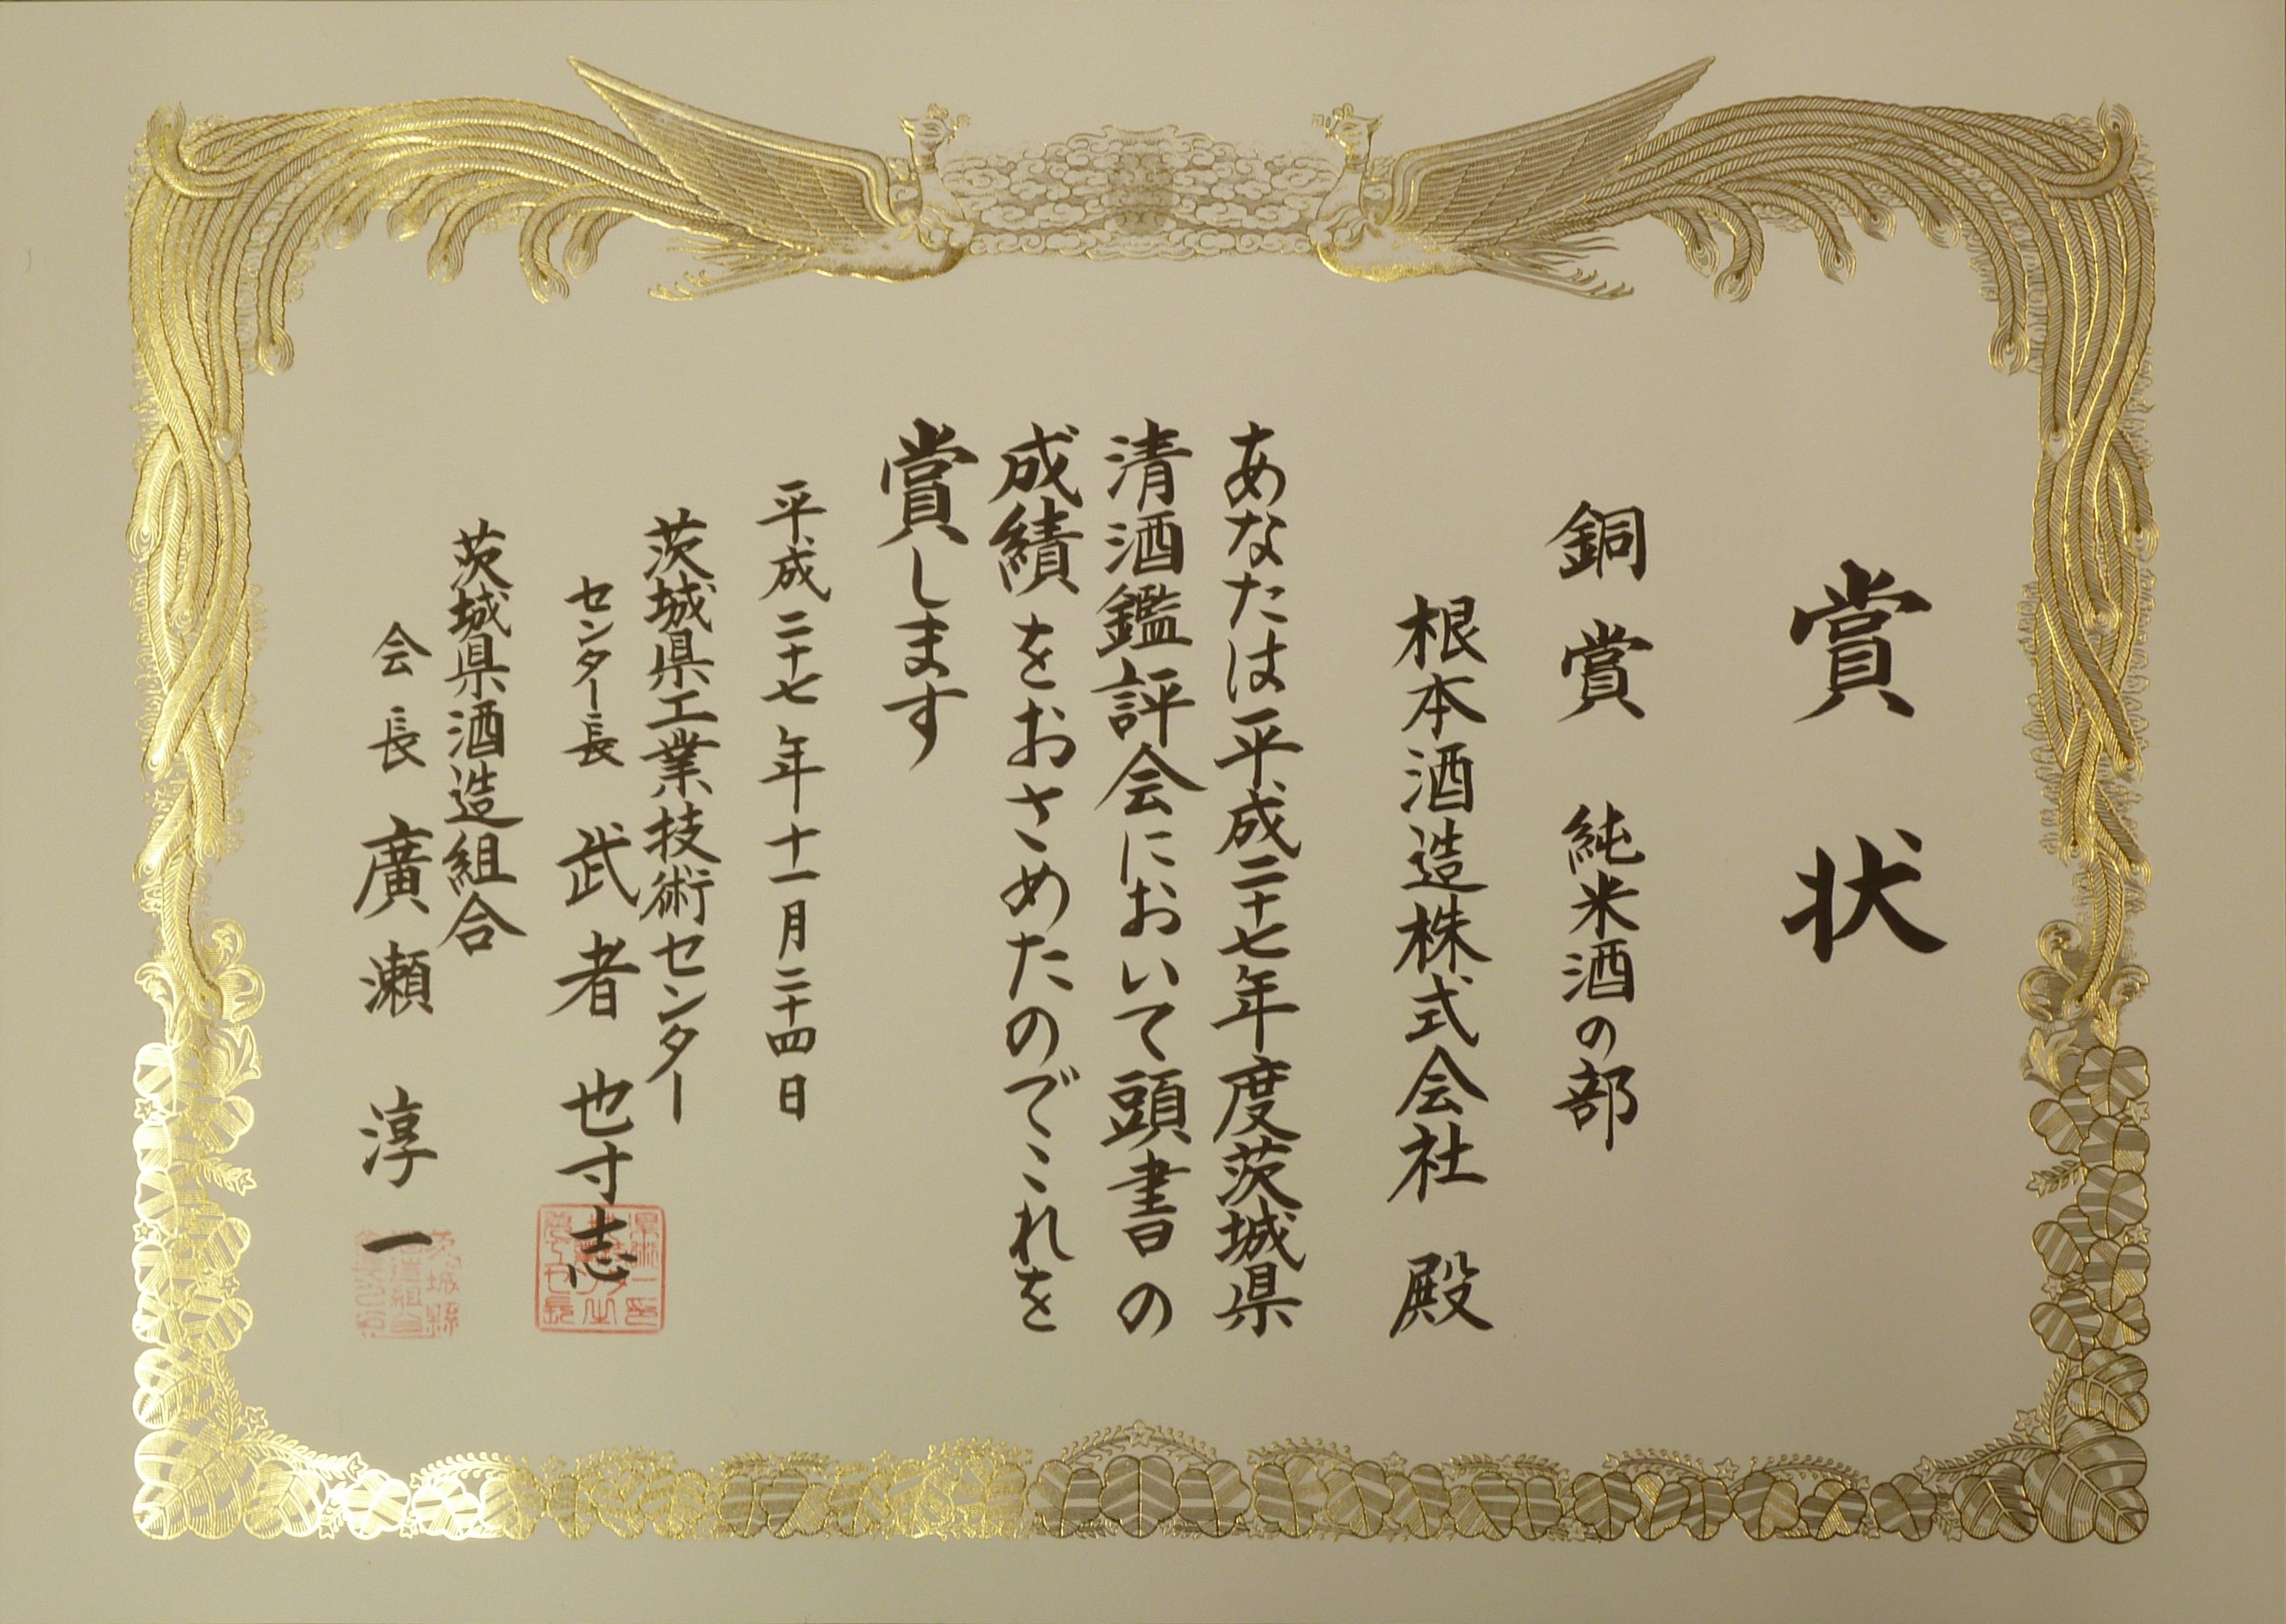 賞状
銅賞 純米酒の部
根本酒造株式会社 殿
あなたは平成二十七年度茨城県
清酒鑑評会において頭書の
成績をおさめたのでこれを
賞します
平成二十七年十一月二十四日
茨城県工業技術センター
センター長 武者 也寸志
茨城県酒造組合
会長 廣瀬 淳一